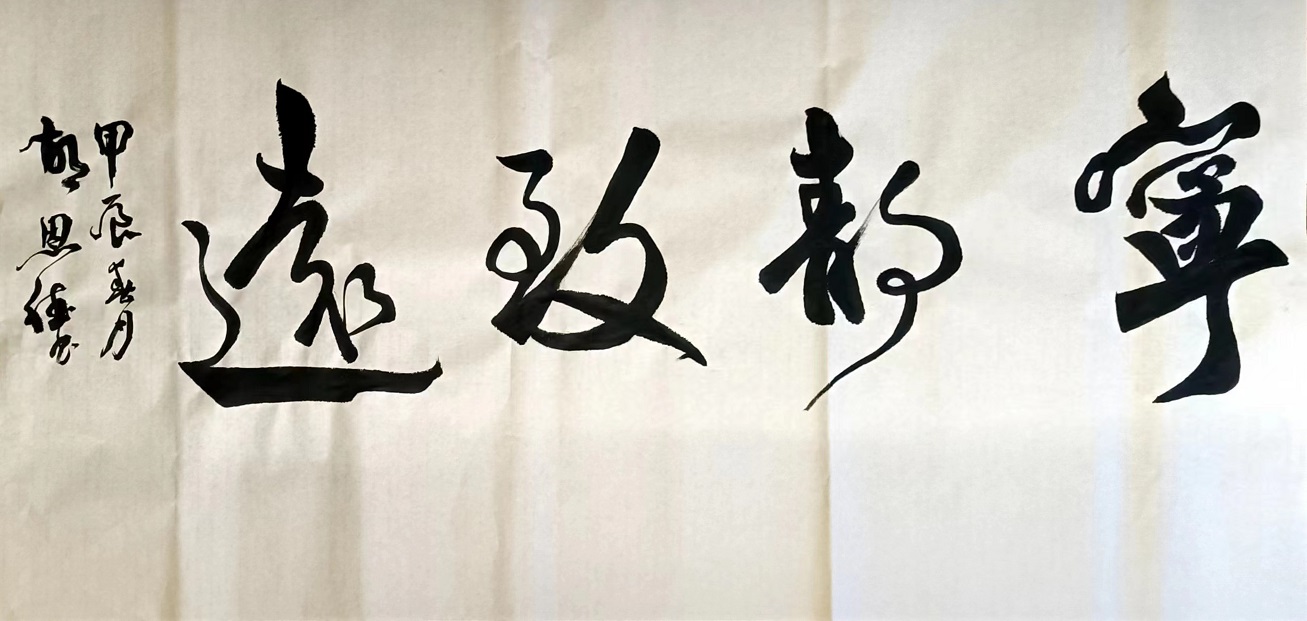 寧靜致遠
甲辰春月
胡恩德书